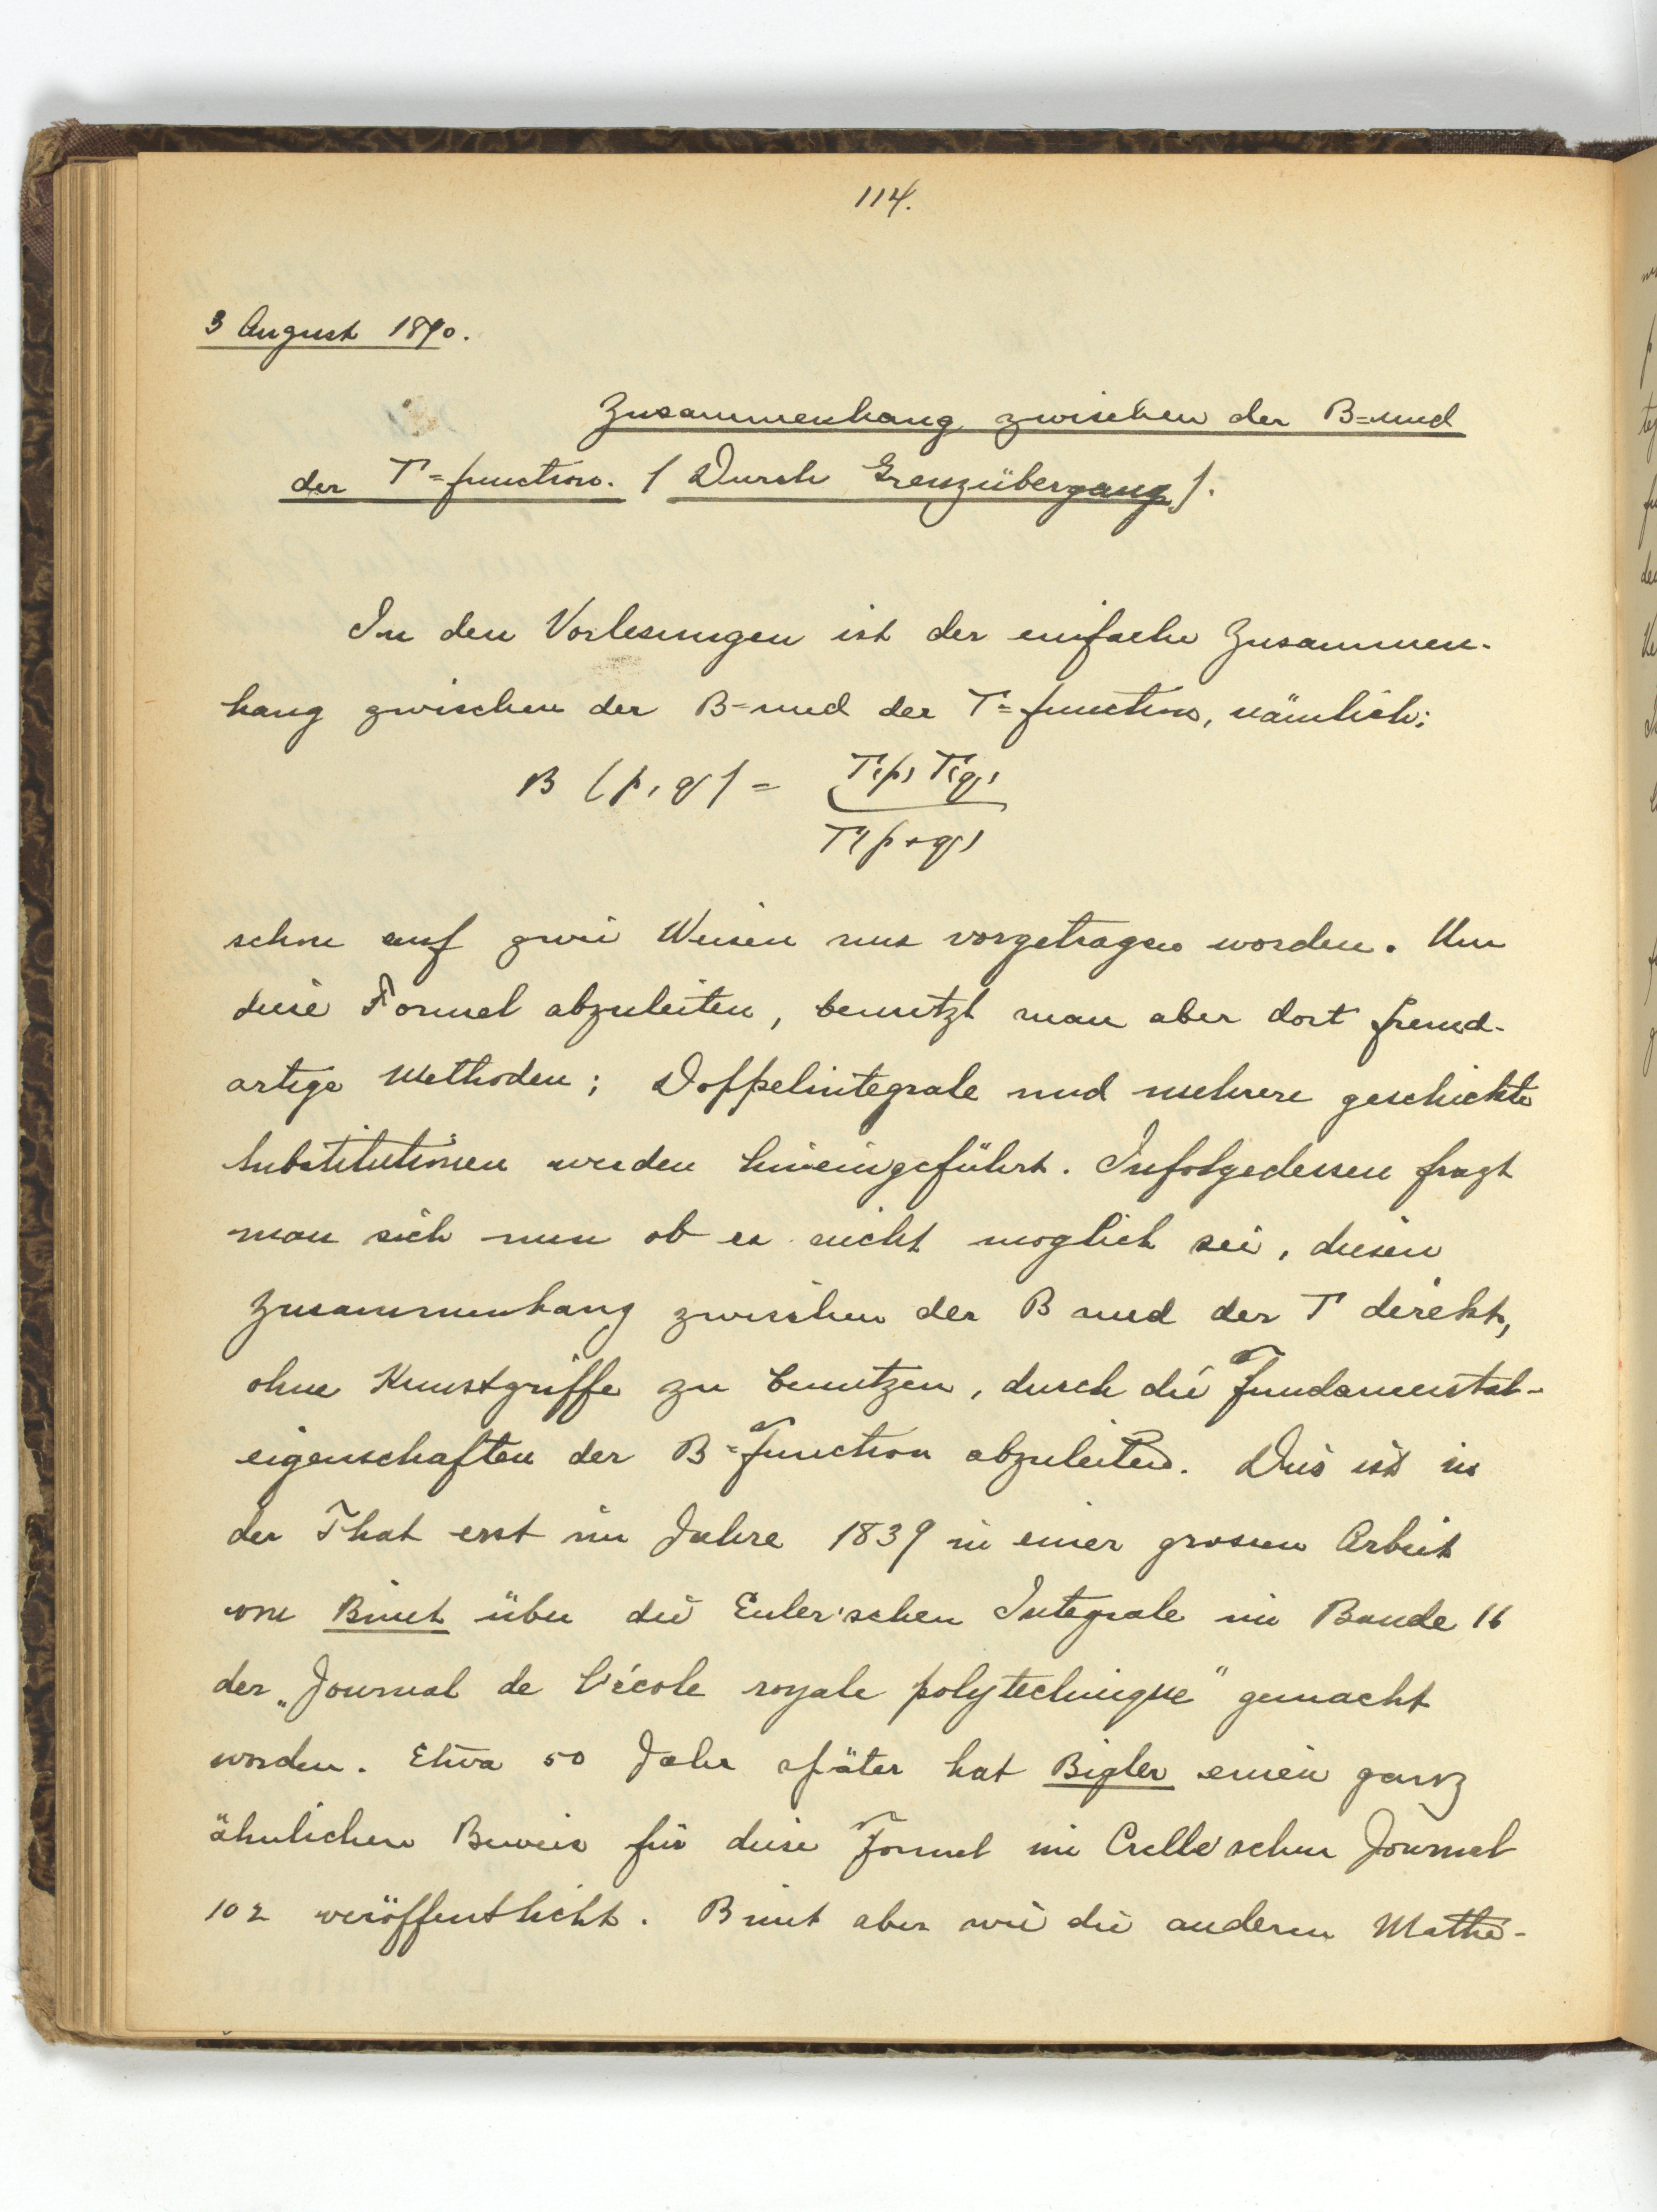 114.
3 August 1890.
Zusammenhang zwischen der B=und
der Γ=function. (Durch Grenzübergang).
In den Vorlesungen ist der einfache Zusammen-
hang zwischen der B=und der Γ=function, nämlich:
B (p, q) = Γ(p) Γ(q)
Γ(p+q)
schon auf zwei Weisen uns vorgetragen worden. Um
diese Formel abzuleiten, benutzt man aber dort fremd-
artige Methoden; Doppelintegrale und mehrere geschickte
Substitutionen werden hineingeführt. Infolgedessen fragt
man sich nun ob es nicht moglich sei, diesen
Zusammenhang zwischen der B und der Γ direkt,
ohne Kunstgriffe zu benutzen, durch die Fundamental-
eigenschaften der B=Function abzuleiten. Dies ist in
der That erst im Jahre 1839 in einer grossen Arbeit
von Binet über die Euler'schen Integrale im Bande 16
der „Journal de l'école royale polytechnique" gemacht
worden. Etwa 50 Jahr später hat Bigler einen ganz
ähnlichen Beweis für diese Formel im Crelle'schen Journal
102 veröffentlicht. Binet aber wie die anderen Mathe-